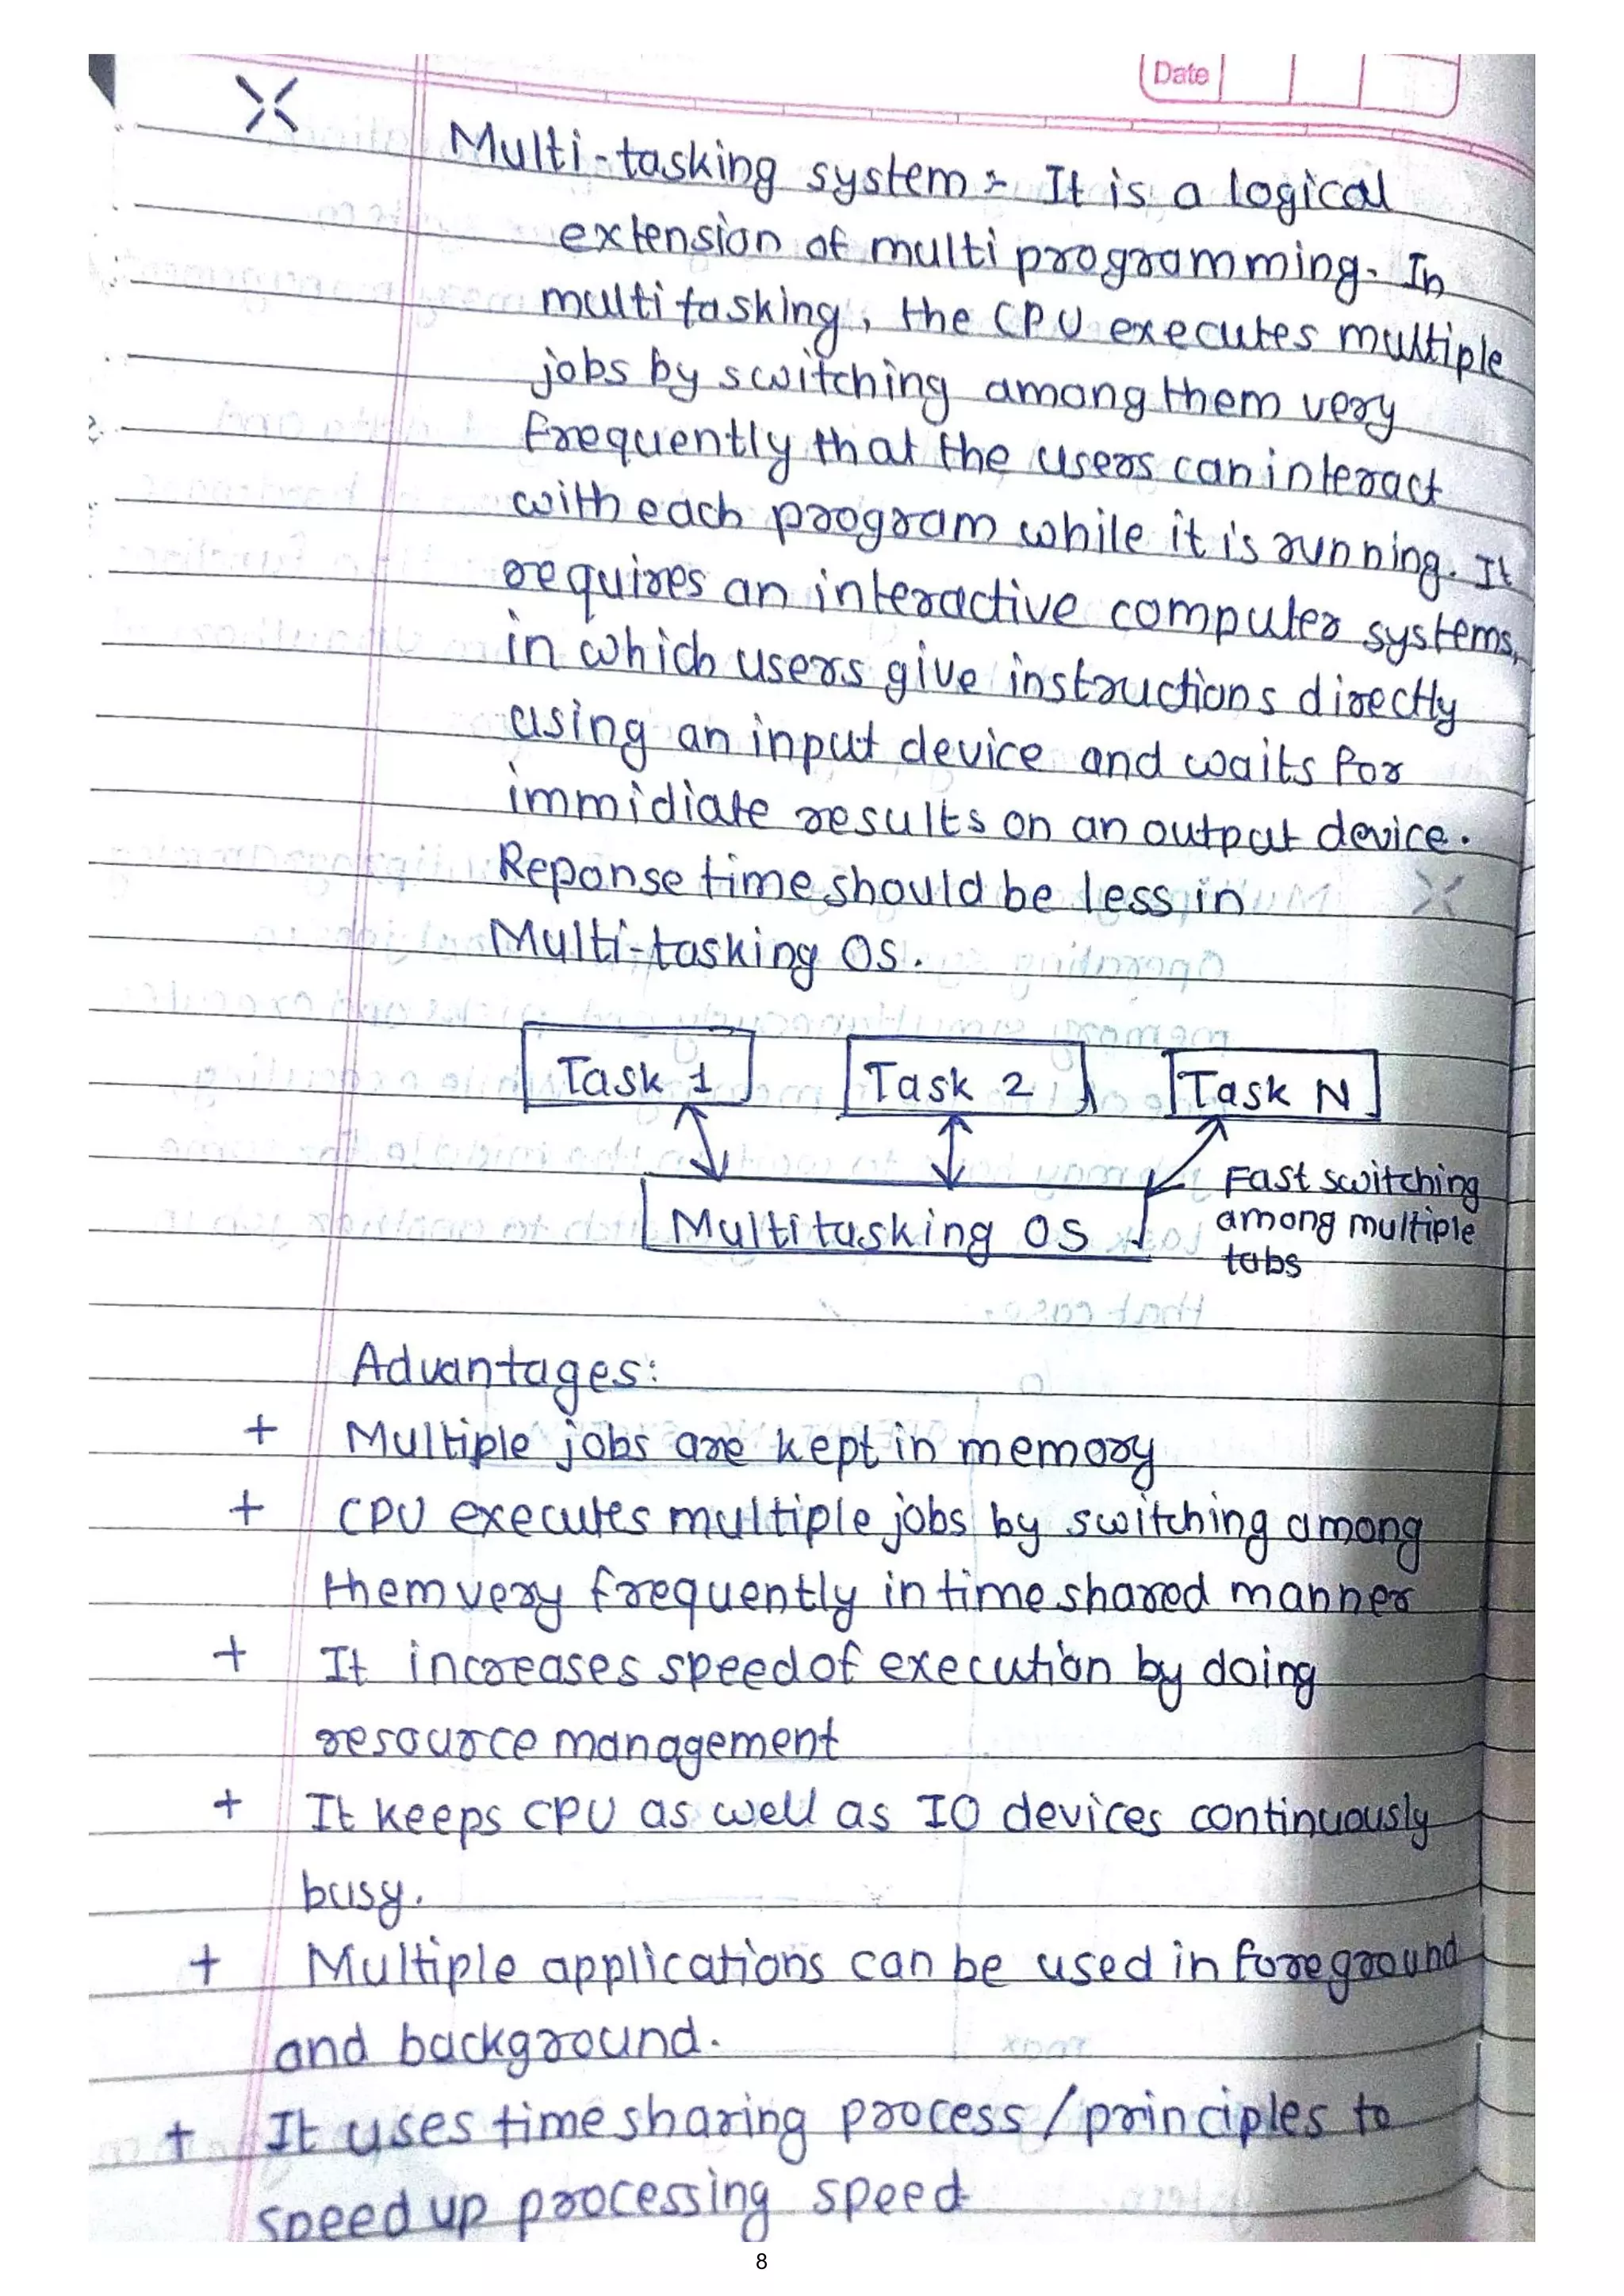 Date
Multi-tasking system :- It is a logical
extension of multi programming. In
multi tasking, the CPU executes multiple
jobs by switching among them very
frequently that the users can interact
with each program while it is running. It
requires an interactive computer systems,
in which users give instructions directly
using an input device and waits for
immidiate results on an output device.
Reponse time should be less in
Multi-tasking OS.
Task 1 Task 2 Task N
Multitasking OS
Fast switching
among multiple
tabs
Advantages:
+ Multiple jobs are kept in memory
+ CPU executes multiple jobs by switching among
them very frequently in time shared manner
+ It increases speed of execution by doing
resource management
+ It keeps CPU as well as IO devices continuously
busy.
+ Multiple applications can be used in foreground
and background.
+ It uses time sharing process / principles to
speed up processing speed
8